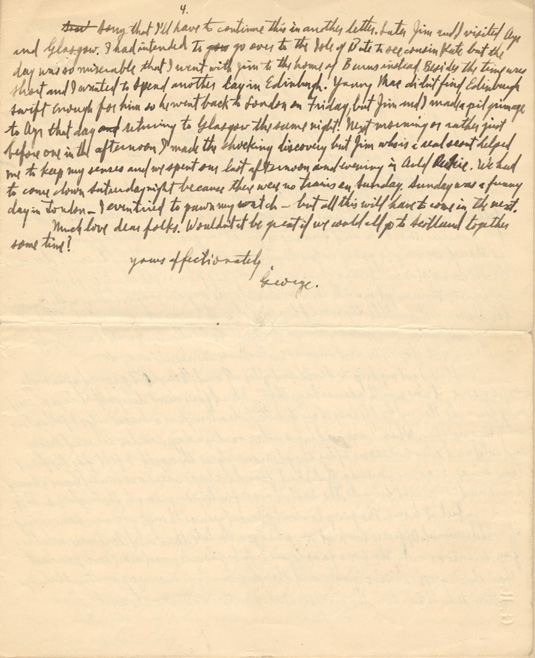 4.
Sorry that I'll have to continue this in another letter. Later Jim and I visited Ayr
and Glasgow. I had intended to go over to the Isle of Bute to see cousin Kate but the
day was so miserable that I went with Jim to the home of Burns instead. Besides the time was
short and I wanted to spend another day in Edinburgh. Young Mac didn't find Edinburgh
swift enough for him so he went back to London on Friday, but Jim and I made a pilgrimage
to Ayr that day and returning to Glasgow the same night! Next morning or rather just
before one in the afternoon I made the shocking discovery but Jim who is a real scout helped
me to keep my senses and we spent our last afternoon and evening in Auld Reekie. We had
to come down Saturday night because there were no trains on Sunday. Sunday was a funny
day in London – I even tried to pawn my watch – but all this will have to come in the next.
Much love dear folks. Wouldn't it be great if we could all go to Scotland together
some time?
yours affectionately
George.